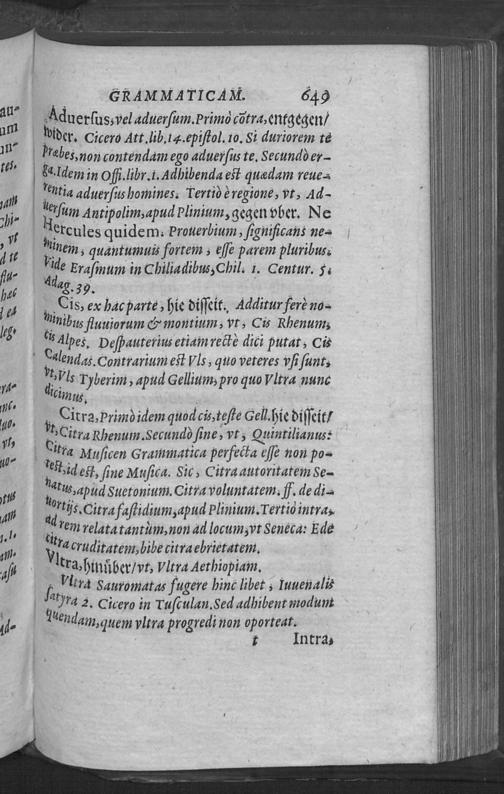 GRAMMATICAM. 649
Aduersus, vel aduersum. Primò cõtra, entgegen/
wider. Cicero Att. lib. 14. epistol. 10. Si duriorem te
præbes, non contendam ego aduersus te. Secundò er-
ga. Idem in Offi. libr. 1. Adhibenda est quædam reue-
rentia aduersus homines. Tertiò è regione, vt, Ad-
uersum Antipolim, apud Plinium, gegen vber. Ne
Hercules quidem. Prouerbium, significans ne-
minem, quantumuis fortem, esse parem pluribus.
Vide Erasmum in Chiliadibus, Chil. 1. Centur. 5.
Adag. 39.
Cis, ex hac parte, hie disseit. Additur ferè no-
minibus fluuiorum & montium, vt, Cis Rhenum,
cis Alpes. Despauterius etiam rectè dici putat, Cis
Calendas. Contrarium est Vls, quo veteres vsi sunt,
vt, Vls Tyberim, apud Gellium, pro quo Vltra nunc
dicimus.
Citra, Primò idem quod cis, teste Gell. hie disseit/
vt, Citra Rhenum. Secundò sine, vt, Quintilianus:
Citra Musicen Grammatica perfecta esse non po-
test, id est, sine Musica. Sic, Citra autoritatem Se-
natus, apud Suetonium. Citra voluntatem. ff. de di-
uortijs. Citra fastidium, apud Plinium. Tertiò intra,
ad rem relata tantùm, non ad locum, vt Seneca: Ede
citra cruditatem, bibe citra ebrietatem.
Vltra, hinüber/ vt, Vltra Aethiopiam.
Vltra Sauromatas fugere hinc libet, Iuuenalis
satyra 2. Cicero in Tusculan. Sed adhibent modum
quendam, quem vltra progredi non oporteat.
t Intra,